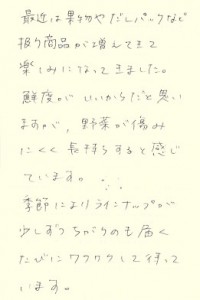 最近は果物やだしパックなど
扱う商品が増えてきて
楽しみになってきました。
鮮度がいいからだと思い
ますが、野菜が傷み
にくく長持ちすると感じ
ています。
季節によりラインナップが
少しずつちがうのも届く
たびにワクワクして待って
います。